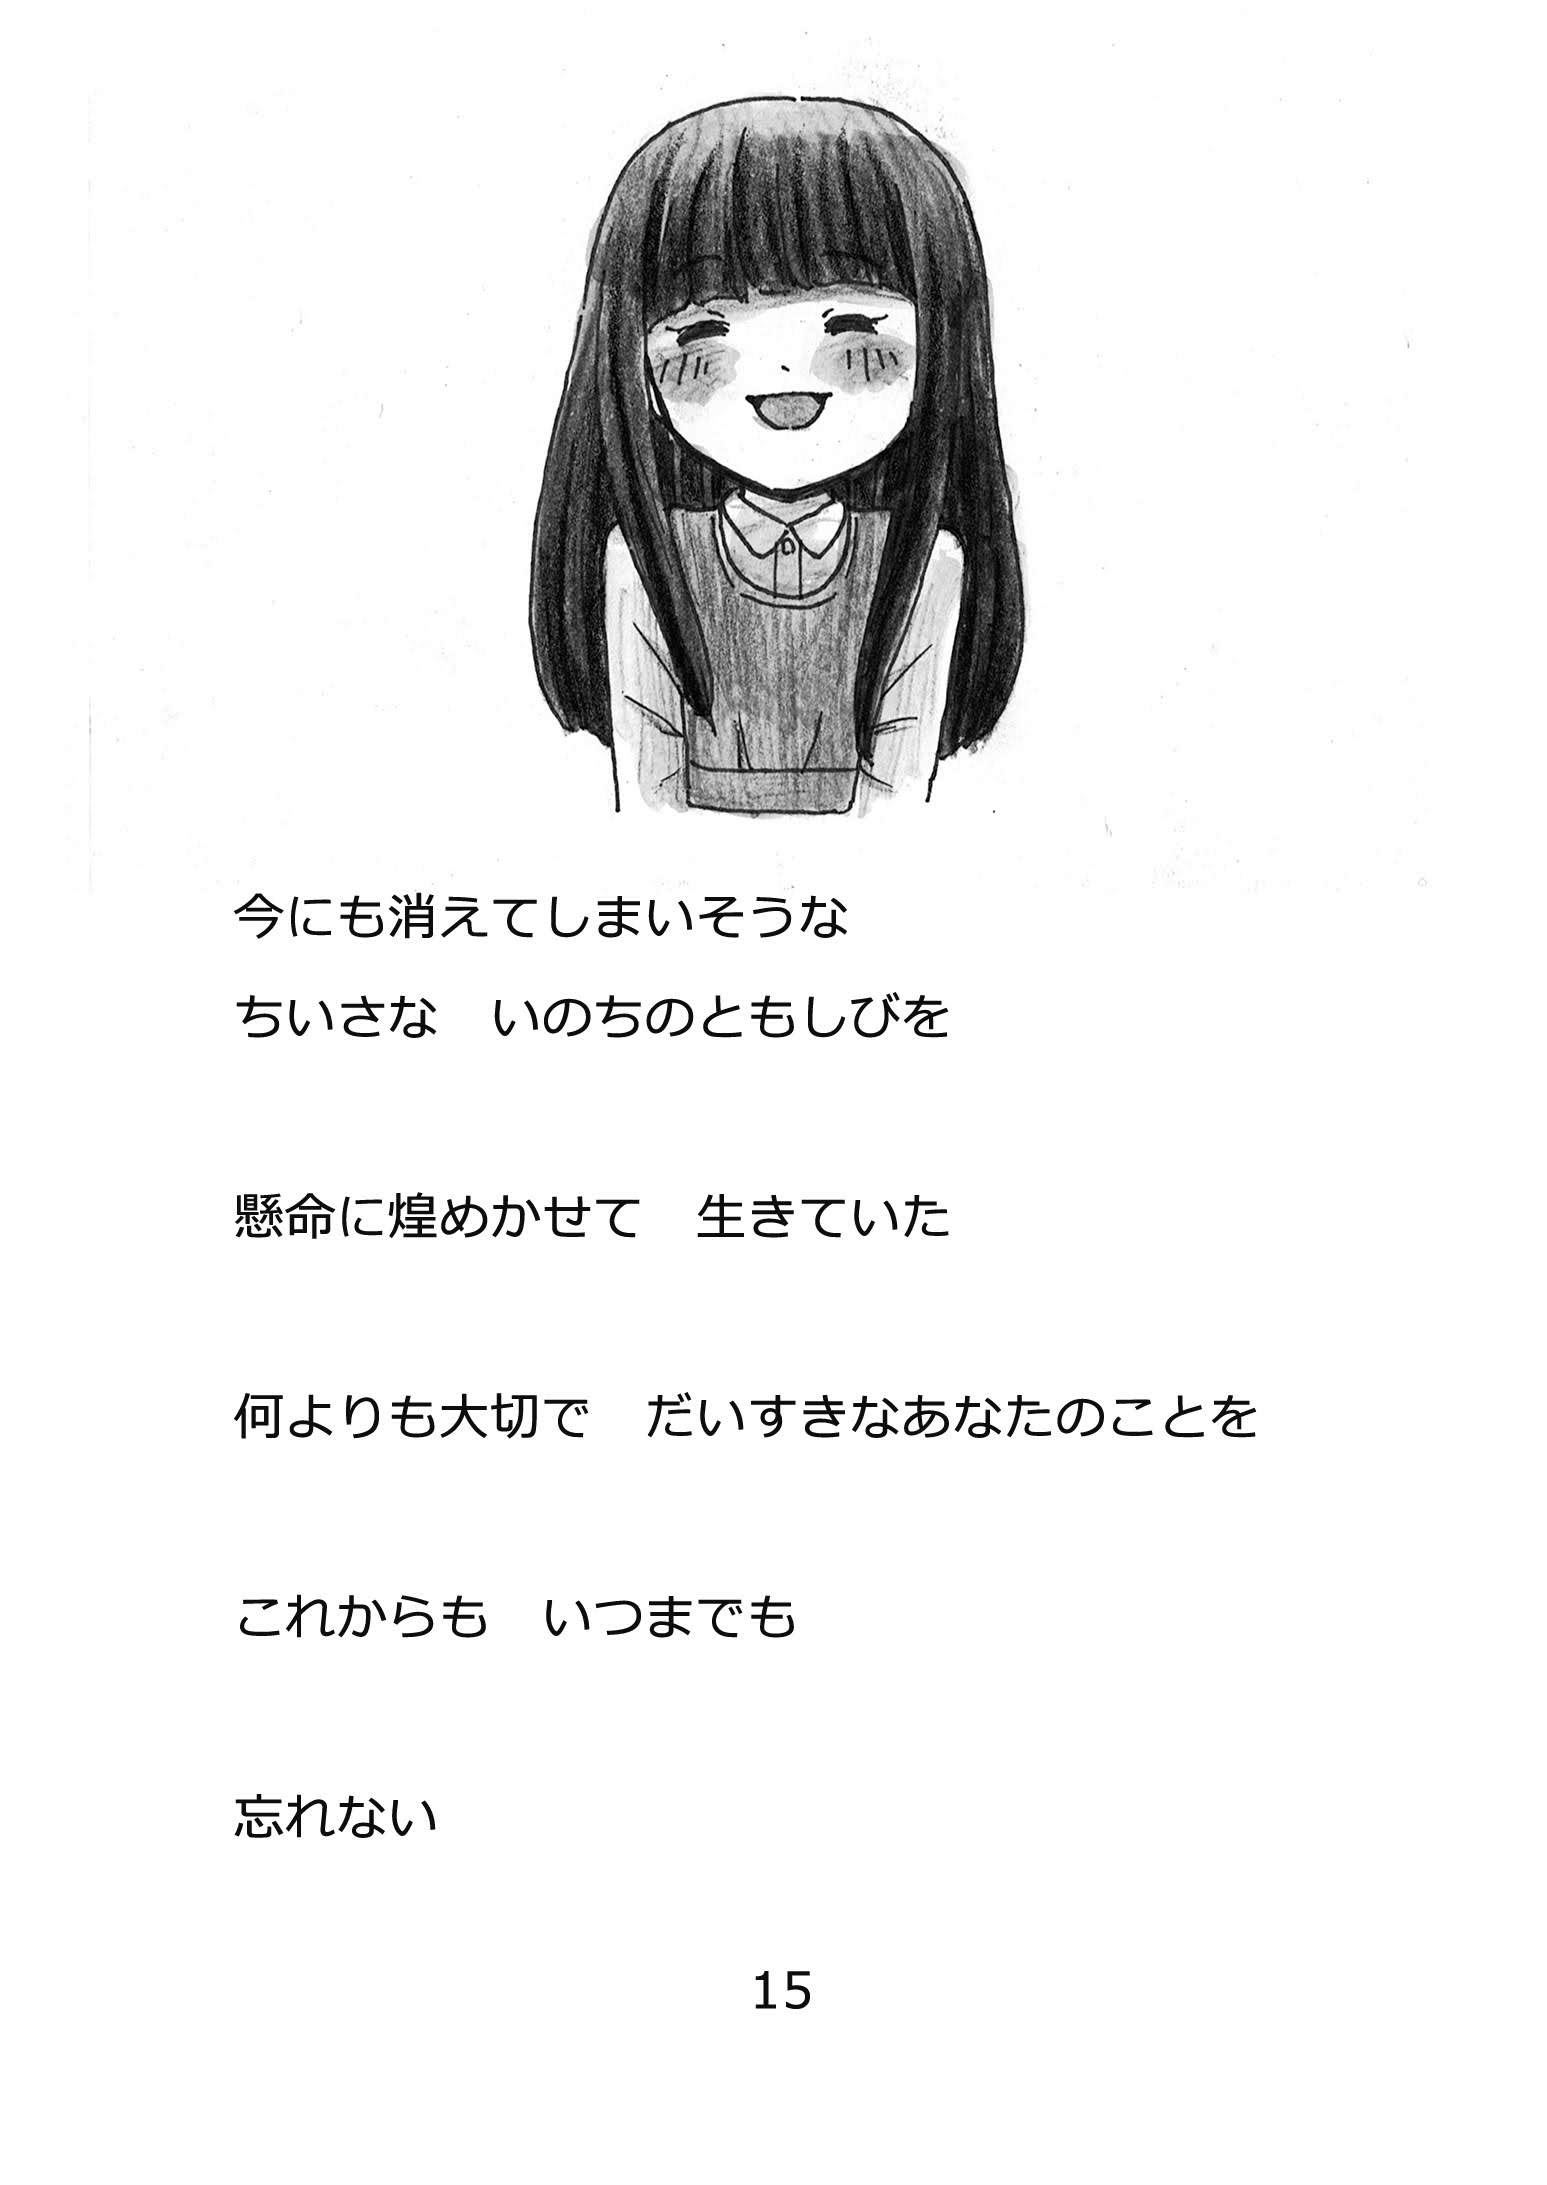 今にも消えてしまいそうな
ちいさな　いのちのともしびを
懸命に煌めかせて　生きていた
何よりも大切で　だいすきなあなたのことを
これからも　いつまでも
忘れない
15